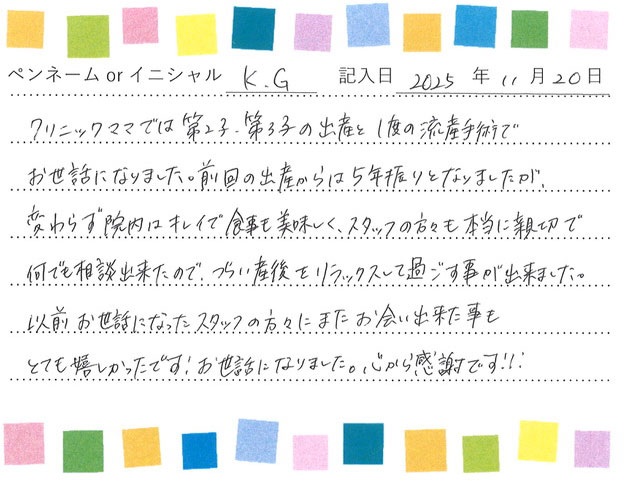 ペンネーム or イニシャル K.G 記入日 2025 年 11 月 20 日
クリニックママでは第2子・第3子の出産と1度の流産手術で
お世話になりました。前回の出産からは5年振りとなりましたが、
変わらず院内はキレイで食事も美味しく、スタッフの方々も本当に親切で
何でも相談出来たので、つらい産後をリラックスして過ごす事が出来ました。
以前お世話になったスタッフの方々にまたお会い出来た事も
とても嬉しかったです!お世話になりました。心から感謝です!!